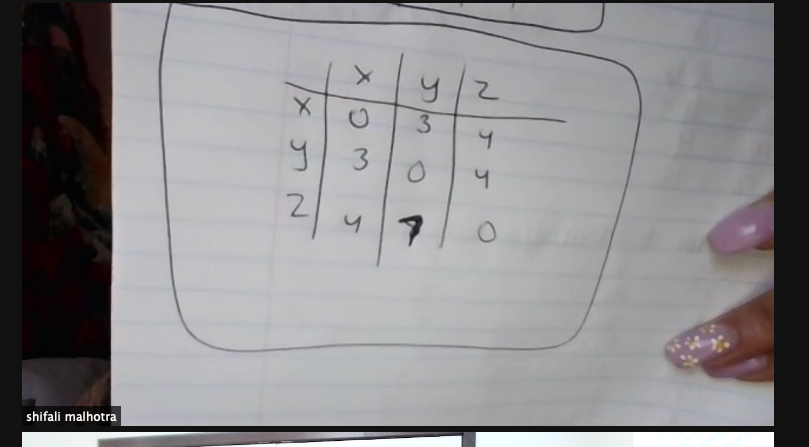 x y z
x 0 3 4
y 3 0 4
z 4 0
shifali malhotra